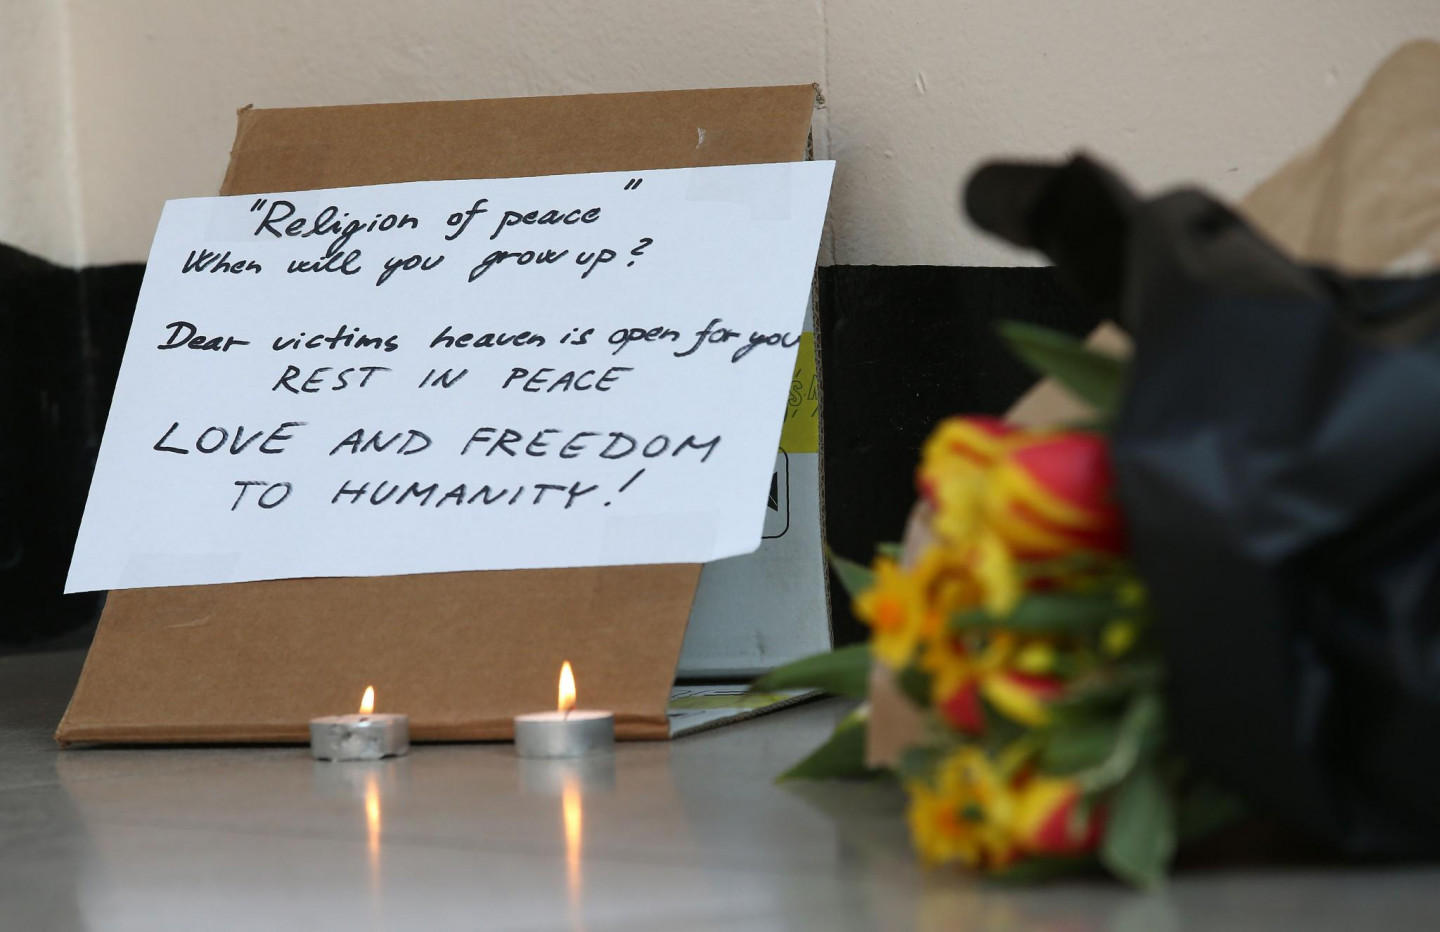 "Religion of peace"
When will you grow up?
Dear victims heaven is open for you
REST IN PEACE
LOVE AND FREEDOM
TO HUMANITY!